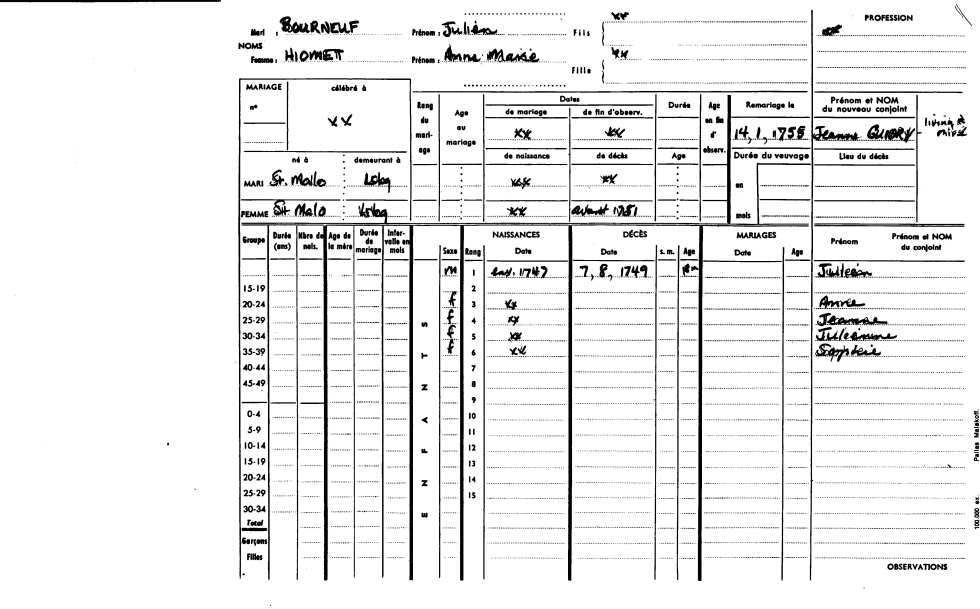 Mari : BOURNEUF Prénom : Julien Fils xx
PROFESSION
xx
NOMS
Femme : HIOMET Prénom : Anne Marie Fille xx
MARIAGE célébré à
n° xx
Rang du mariage
Age au mariage
Dates
de mariage de fin d'observ.
xx xx
de naissance de décès
Durée
Age
Age en fin d' observ.
Remariage le
14, 1, 1755
Prénom et NOM du nouveau conjoint
Jeanne
Durée du veuvage
en
mois
Lieu du décès
né à demeurant à
MARI St. Malo xx xx
FEMME St Malo xx avant 1751
Groupe Durée (ans) Nbre de nais. Age de la mère Durée de mariage Intervalle en mois
ENFANTS
Sexe Rang
NAISSANCES
Date
DÉCÈS
Date s. m. Age
MARIAGES
Date Age
Prénom Prénom et NOM du conjoint
m 1 1747 7, 8, 1749 Julien
15-19 2
20-24 f 3 xx Annie
25-29 f 4 xx Jeanne
30-34 f 5 xx
35-39 f 6 xx
40-44 7
45-49 8
9
0-4 10
5-9 11
10-14 12
15-19 13
20-24 14
25-29 15
30-34
Total
Garçons
Filles
OBSERVATIONS
100,000 ex.